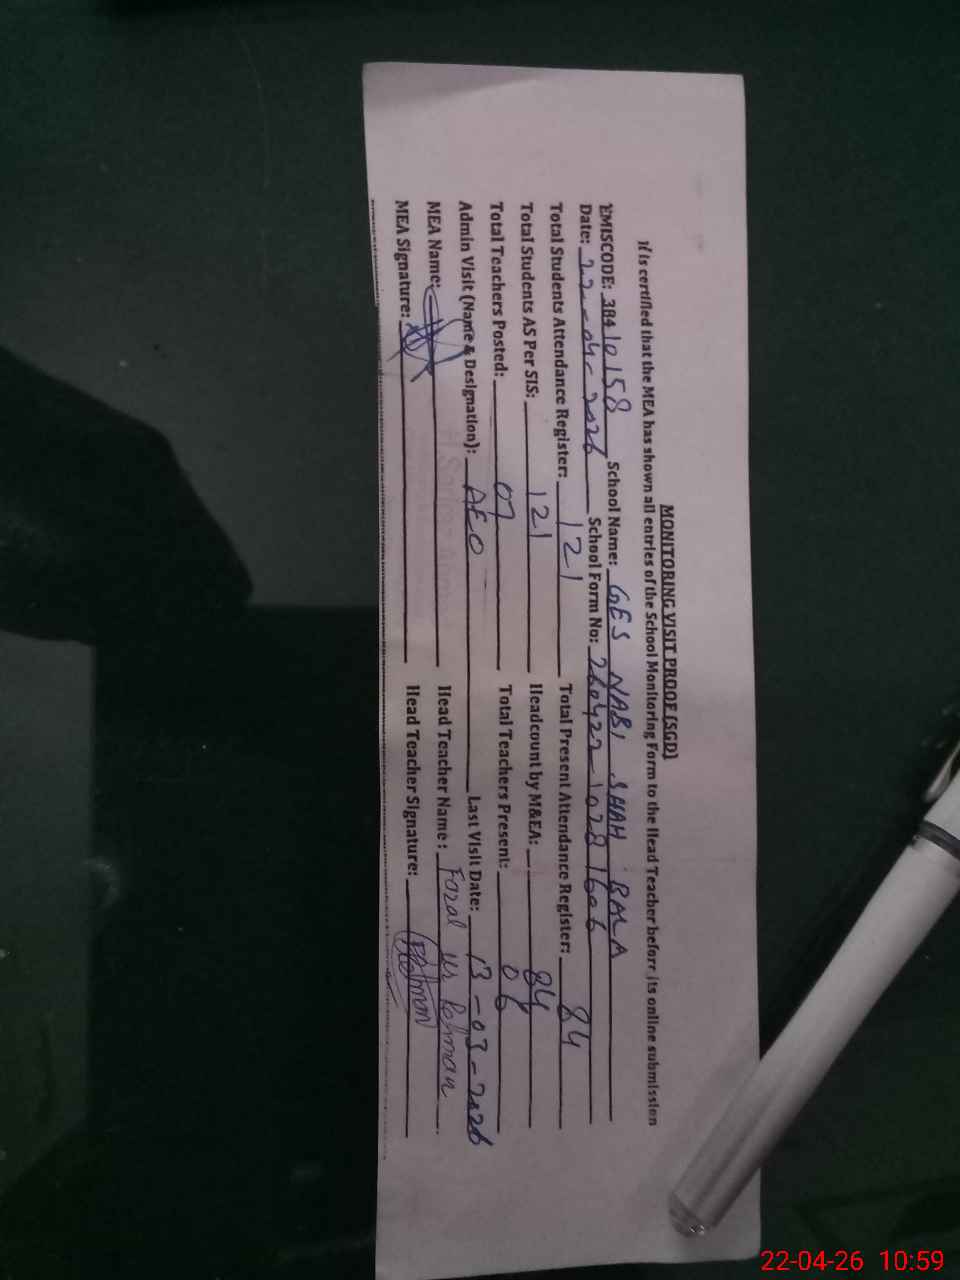 MONITORING VISIT PROOF (SGD)
It is certified that the MEA has shown all entries of the School Monitoring Form to the Head Teacher before its online submission
EMISCODE: 38410158 School Name: GES NABI SHAH BALA
Date: 22-04-2026 School Form No: 260422-10281606
Total Students Attendance Register: 121 Total Present Attendance Register: 84
Total Students AS Per SIS: 121 Headcount by M&EA: 84
Total Teachers Posted: 07 Total Teachers Present: 06
Admin Visit (Name & Designation): AEO Last Visit Date: 13-03-2026
MEA Name: Head Teacher Name: Fazal ur Rehman
MEA Signature: Head Teacher Signature:
22-04-26 10:59